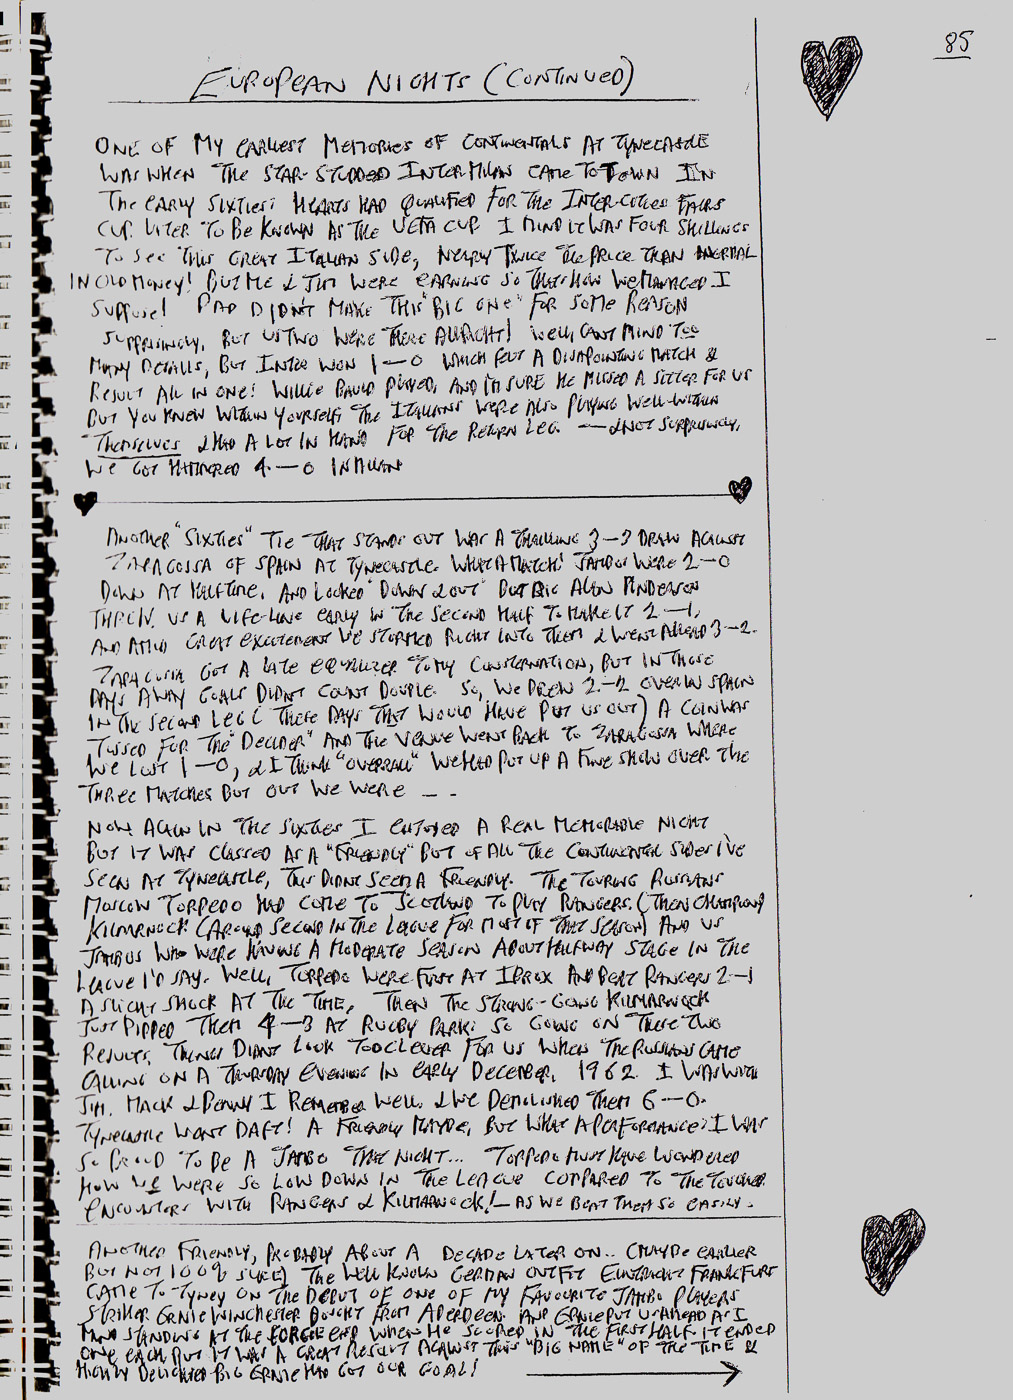 85
EUROPEAN NIGHTS (CONTINUED)
ONE OF MY EARLIEST MEMORIES OF CONTINENTALS AT TYNECASTLE
WAS WHEN THE STAR-STUDDED INTER MILAN CAME TO TOWN IN
THE EARLY SIXTIES: HEARTS HAD QUALIFIED FOR THE INTER-CITIES FAIRS
CUP. LATER TO BE KNOWN AS THE UEFA CUP I MIND IT WAS FOUR SHILLINGS
TO SEE THIS GREAT ITALIAN SIDE, NEARLY TWICE THE PRICE THAN NORMAL
IN OLD MONEY! BUT ME & JIM WERE EARNING SO THATS HOW WE MANAGED I
SUPPOSE! DAD DIDN'T MAKE THIS "BIG ONE" FOR SOME REASON
SURPRISINGLY, BUT US TWO WERE THERE ALLRIGHT! WELL, CANT MIND TOO
MANY DETAILS, BUT INTER WON 1-0 WHICH FELT A DISAPOINTING MATCH &
RESULT ALL IN ONE! WILLIE BAULD PLAYED, AND I'M SURE HE MISSED A SITTER FOR US
BUT YOU KNEW WITHIN YOURSELF, THE ITALIANS WERE ALSO PLAYING WELL-WITHIN
THEMSELVES & HAD A LOT IN HAND FOR THE RETURN LEG. — & NOT SURPRISINGLY,
WE GOT HAMMERED 4-0 IN MILAN
ANOTHER "SIXTIES" TIE THAT STANDS OUT WAS A THRILLING 3-3 DRAW AGAINST
ZARAGOSSA OF SPAIN AT TYNECASTLE. WHAT A MATCH! JAMBOS WERE 2-0
DOWN AT HALFTIME, AND LOOKED "DOWN & OUT" BUT BIG ALAN ANDERSON
THREW US A LIFE-LINE EARLY IN THE SECOND HALF TO MAKE IT 2-1,
AND AMID GREAT EXCITEMENT WE STORMED RIGHT INTO THEM & WENT AHEAD 3-2.
ZARAGOSSA GOT A LATE EQUALIZER TO MY CONSTERNATION, BUT IN THOSE
DAYS AWAY GOALS DIDNT COUNT DOUBLE. SO, WE DREW 2-2 OVER IN SPAIN
IN THE SECOND LEG (THESE DAYS THAT WOULD HAVE PUT US OUT) A COIN WAS
TOSSED FOR THE "DECIDER" AND THE VENUE WENT BACK TO ZARAGOSSA WHERE
WE LOST 1-0, & I THINK "OVERALL" WE HAD PUT UP A FINE SHOW OVER THE
THREE MATCHES BUT OUT WE WERE - -
NOW AGAIN IN THE SIXTIES I ENJOYED A REAL MEMORABLE NIGHT
BUT IT WAS CLASSED AS A "FRIENDLY" BUT OF ALL THE CONTINENTAL SIDES I'VE
SEEN AT TYNECASTLE, THIS DIDNT SEEM A FRIENDLY. THE TOURING RUSSIANS
MOSCOW TORPEDO HAD COME TO SCOTLAND TO PLAY RANGERS, (THEN CHAMPIONS)
KILMARNOCK (AROUND SECOND IN THE LEAGUE FOR MOST OF THAT SEASON) AND US
JAMBOS WHO WERE HAVING A MODERATE SEASON ABOUT HALFWAY STAGE IN THE
LEAGUE I'D SAY. WELL, TORPEDO WERE FIRST AT IBROX AND BEAT RANGERS 2-1
A SLIGHT SHOCK AT THE TIME, THEN THE STRONG-GOING KILMARNOCK
JUST PIPPED THEM 4-3 AT RUGBY PARK: SO GOING ON THESE TWO
RESULTS, THINGS DIDNT LOOK TOO CLEVER FOR US WHEN THE RUSSIANS CAME
CALLING ON A THURSDAY EVENING IN EARLY DECEMBER, 1962. I WAS WITH
JIM, MACK & BENNY I REMEMBER WELL, & WE DEMOLISHED THEM 6-0.
TYNECASTLE WENT DAFT! A FRIENDLY MAYBE, BUT WHAT A PERFORMANCE: I WAS
SO PROUD TO BE A JAMBO THAT NIGHT... TORPEDO MUST HAVE WONDERED
HOW WE WERE SO LOW DOWN IN THE LEAGUE COMPARED TO THE TOUGHER
ENCOUNTERS WITH RANGERS & KILMARNOCK! — AS WE BEAT THEM SO EASILY.
ANOTHER FRIENDLY, PROBABLY ABOUT A DECADE LATER ON.. (MAYBE EARLIER
BUT NOT 100% SURE) THE WELL KNOWN GERMAN OUTFIT EINTRACHT FRANKFURT
CAME TO TYNEY ON THE DEBUT OF ONE OF MY FAVOURITE JAMBO PLAYERS
STRIKER ERNIE WINCHESTER BOUGHT FROM ABERDEEN AND ERNIE PUT US AHEAD AS I
MIND STANDING AT THE GORGIE END WHEN HE SCORED IN THE FIRST HALF. IT ENDED
ONE EACH BUT IT WAS A GREAT RESULT AGAINST THIS "BIG NAME" OF THE TIME &
HIGHLY DELIGHTED BIG ERNIE HAD GOT OUR GOAL!